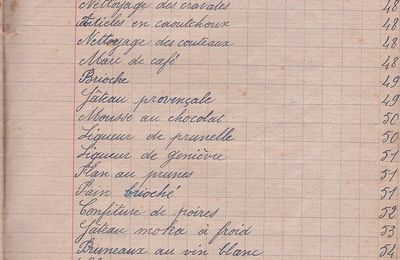 Nettoyage des cravates 48
Articles en caoutchoux 48
Nettoyage des couteaux 48
Marc de café 48
Brioche 49
Gâteau provençale 49
Mousse au chocolat 50
Liqueur de prunelle 50
Liqueur de genièvre 51
Flan au prunes 51
Pain brioché 51
Confiture de poires 52
Gâteau moka à froid 53
Pruneaux au vin blanc 54